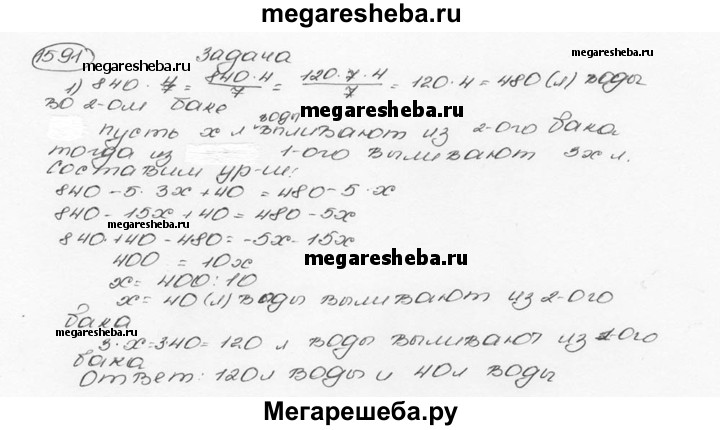 megaresheba.ru
1591 Задача
megaresheba.ru megaresheba.ru
1) 840 · 4/7 = 840·4/7 = 120·7·4/7 = 120·4 = 480 (л) воды
во 2-ом баке
megaresheba.ru
пусть x л воды выливают из 2-ого бака
тогда из 1-ого выливают 3x л.
составим ур-ие:
840 - 5 · 3x + 40 = 480 - 5 · x
840 - 15x + 40 = 480 - 5x
megaresheba.ru
840 + 40 - 480 = -5x 15x
400 = 10x
megaresheba.ru
x = 400 : 10
x = 40 (л) воды выливают из 2-ого
бака
megaresheba.ru
3·x = 340 = 120 л воды выливают из 1-ого
бака
Ответ: 120л воды и 40л воды
Мегарешеба.ру